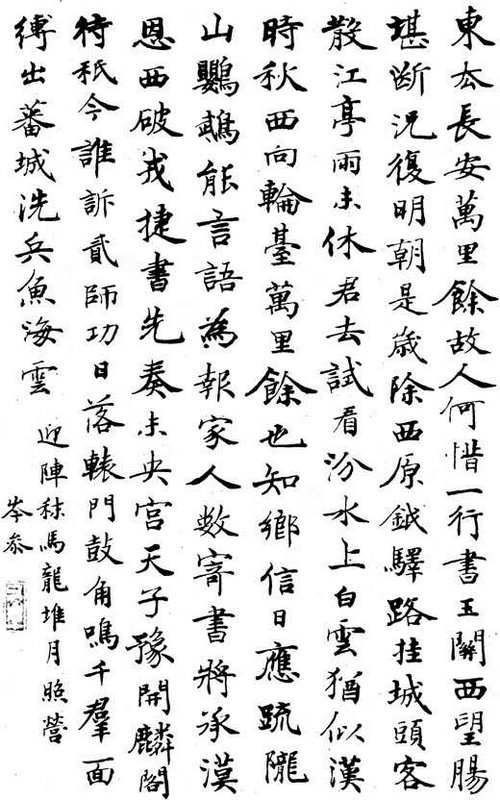 東去長安萬里餘故人何惜一行書玉關西望腸
堪断況復明朝是歲除西原鉞驛路挂城頭客
散江亭雨未休君去試看汾水上白雲猶似漢
時秋西向輪臺萬里餘也知鄉信日應疏隴
山鸚鵡能言語為報家人數寄書將承漢
恩西破戎捷書先奏未央宮天子豫開麟閣
待秖今誰訴貳師功日落轅門鼓角鳴千羣面
縛出蕃城洗兵魚海雲
迎陣秣馬龍堆月照營
岑參